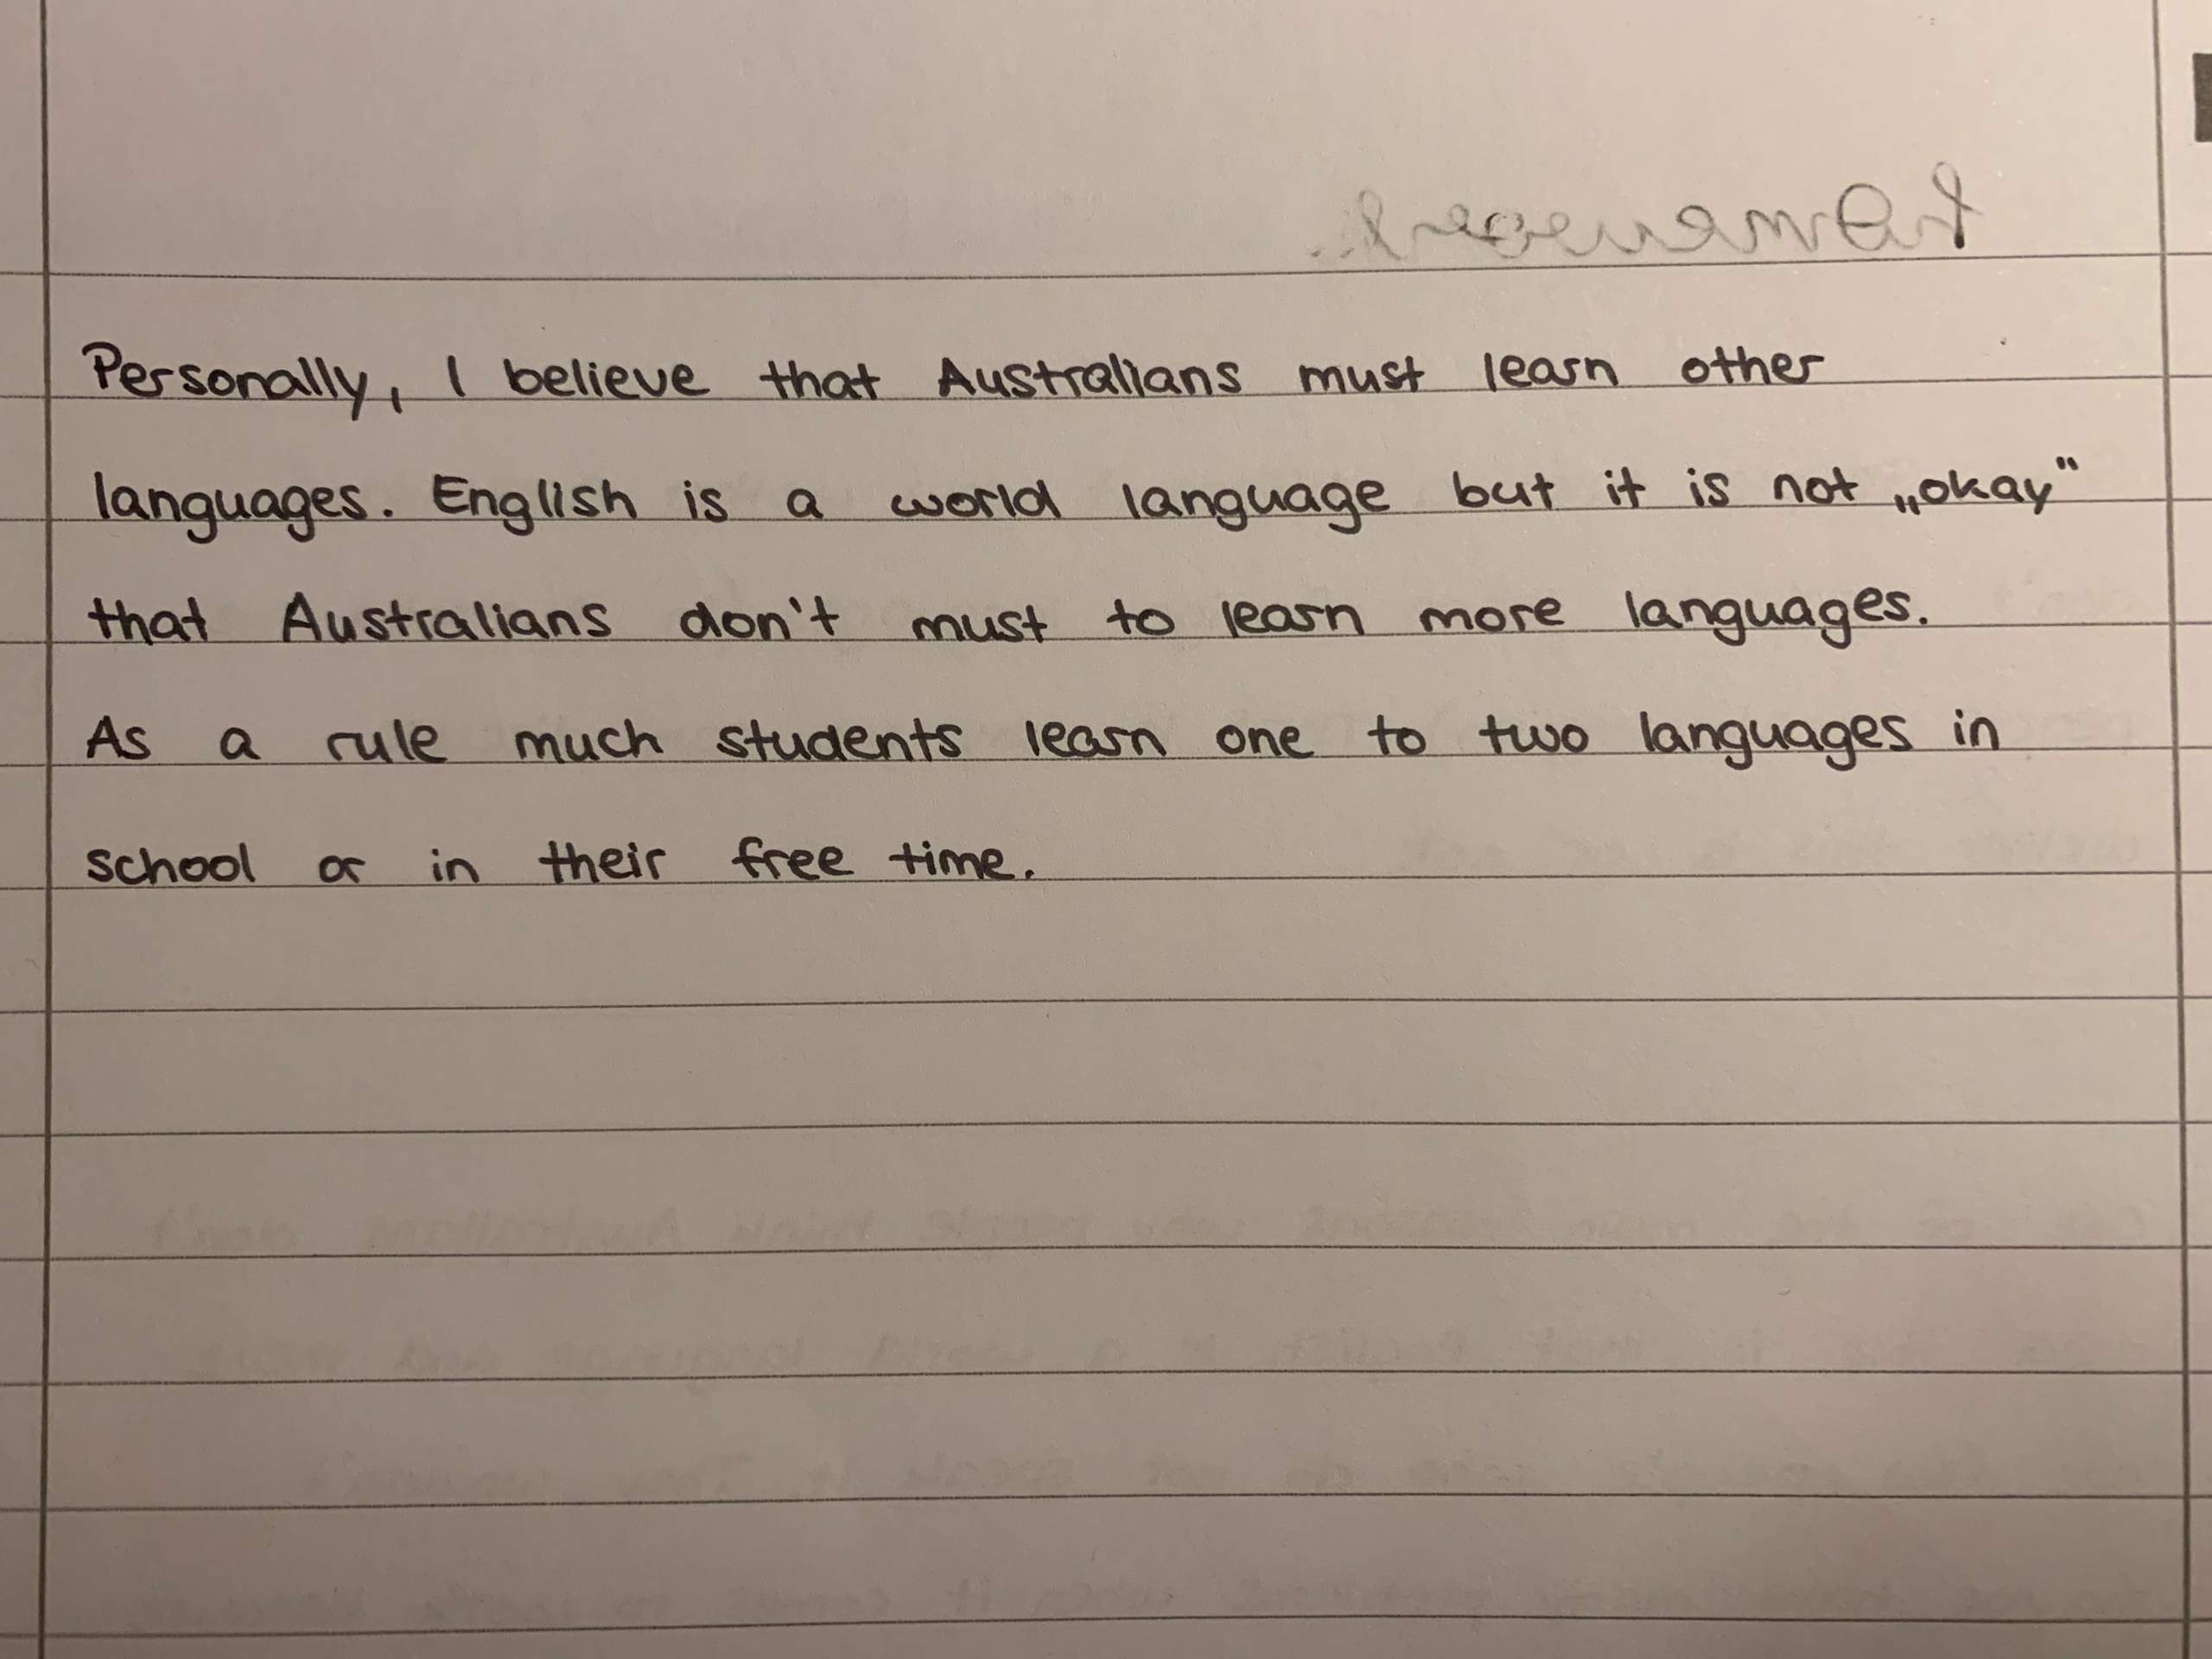 Personally, I believe that Australians must learn other
languages. English is a world language but it is not „okay“
that Australians don't must to learn more languages.
As a rule much students learn one to two languages in
school or in their free time.